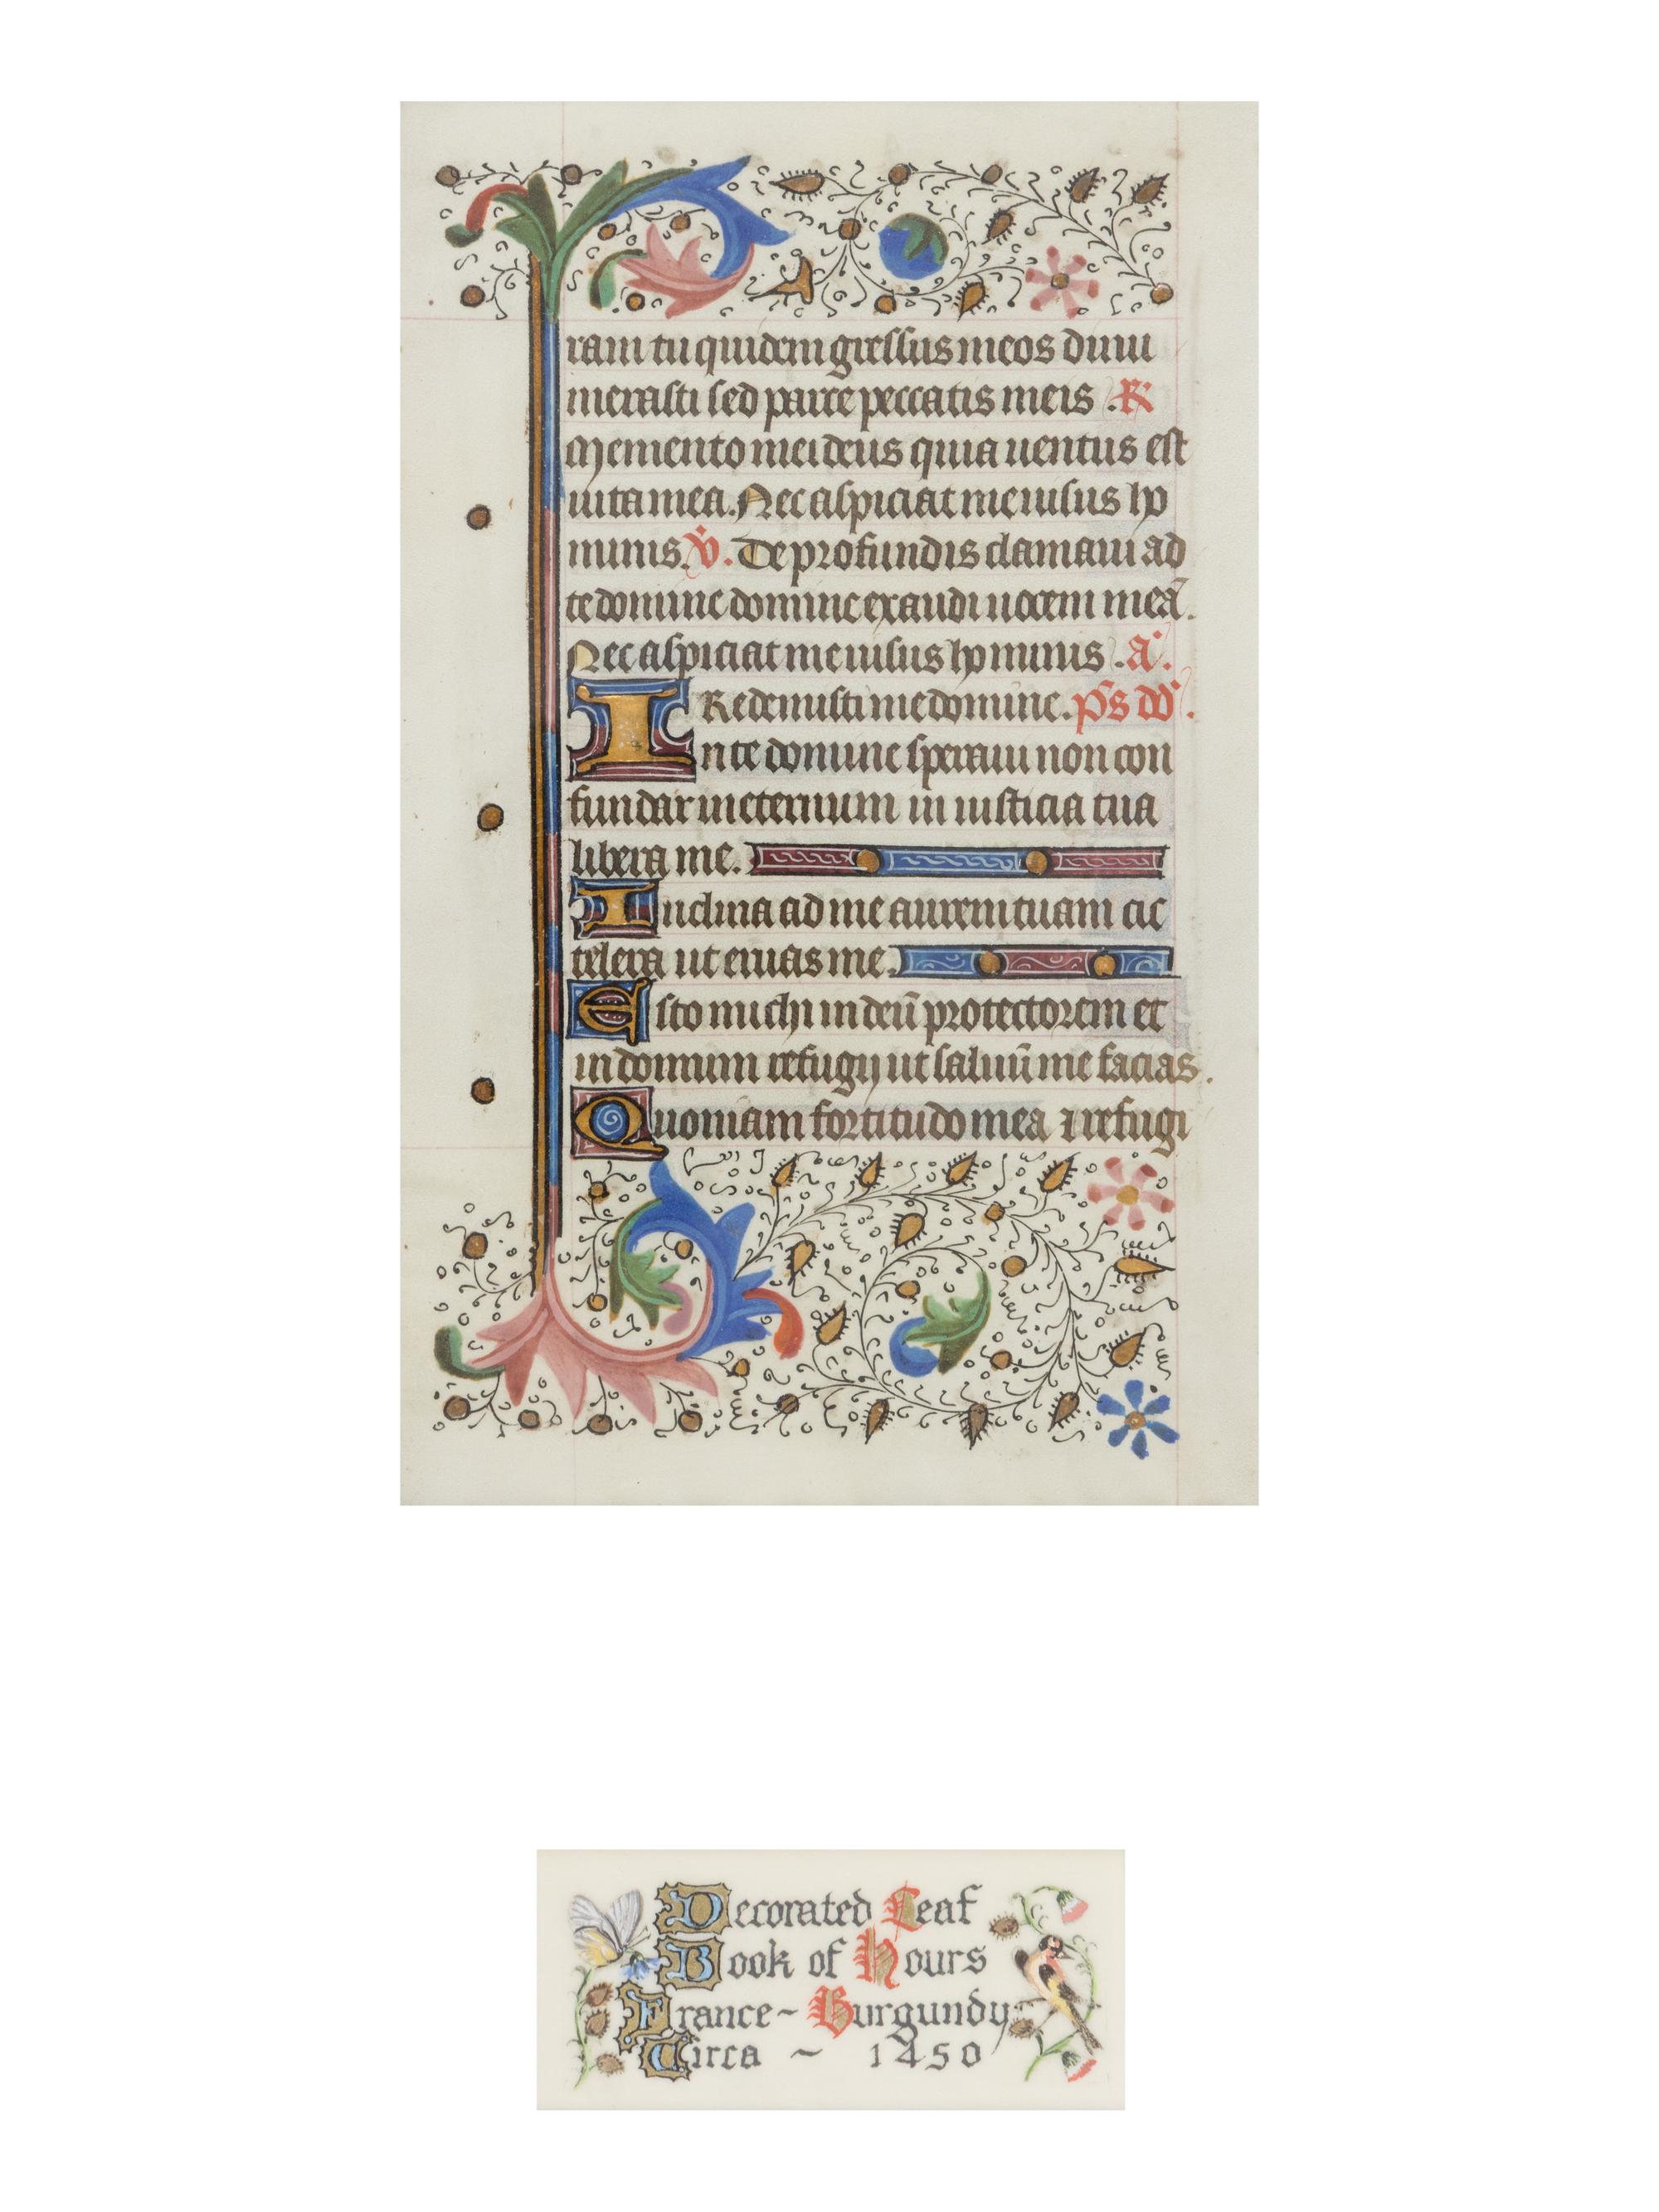 ram tu quidem gressus meos dinu
merasti sed parce peccatis meis .R.
Memento mei deus quia uentus est
uita mea. Nec aspiciat me uisus ho
minis. V. De profundis clamaui ad
te domine domine exaudi uocem meā.
Nec aspiciat me uisus hominis . a.
Redemisti me domine. p̄s dd.
In te domine speraui non con
fundar in eternum in iusticia tua
libera me.
Inclina ad me aurem tuam ac
celera ut eruas me.
Esto michi in deū protectorem et
in domum refugij ut saluū me facias.
Quoniam fortitudo mea ⁊ refugi
Decorated Leaf
Book of Hours
France~Burgundy
Circa ~ 1450